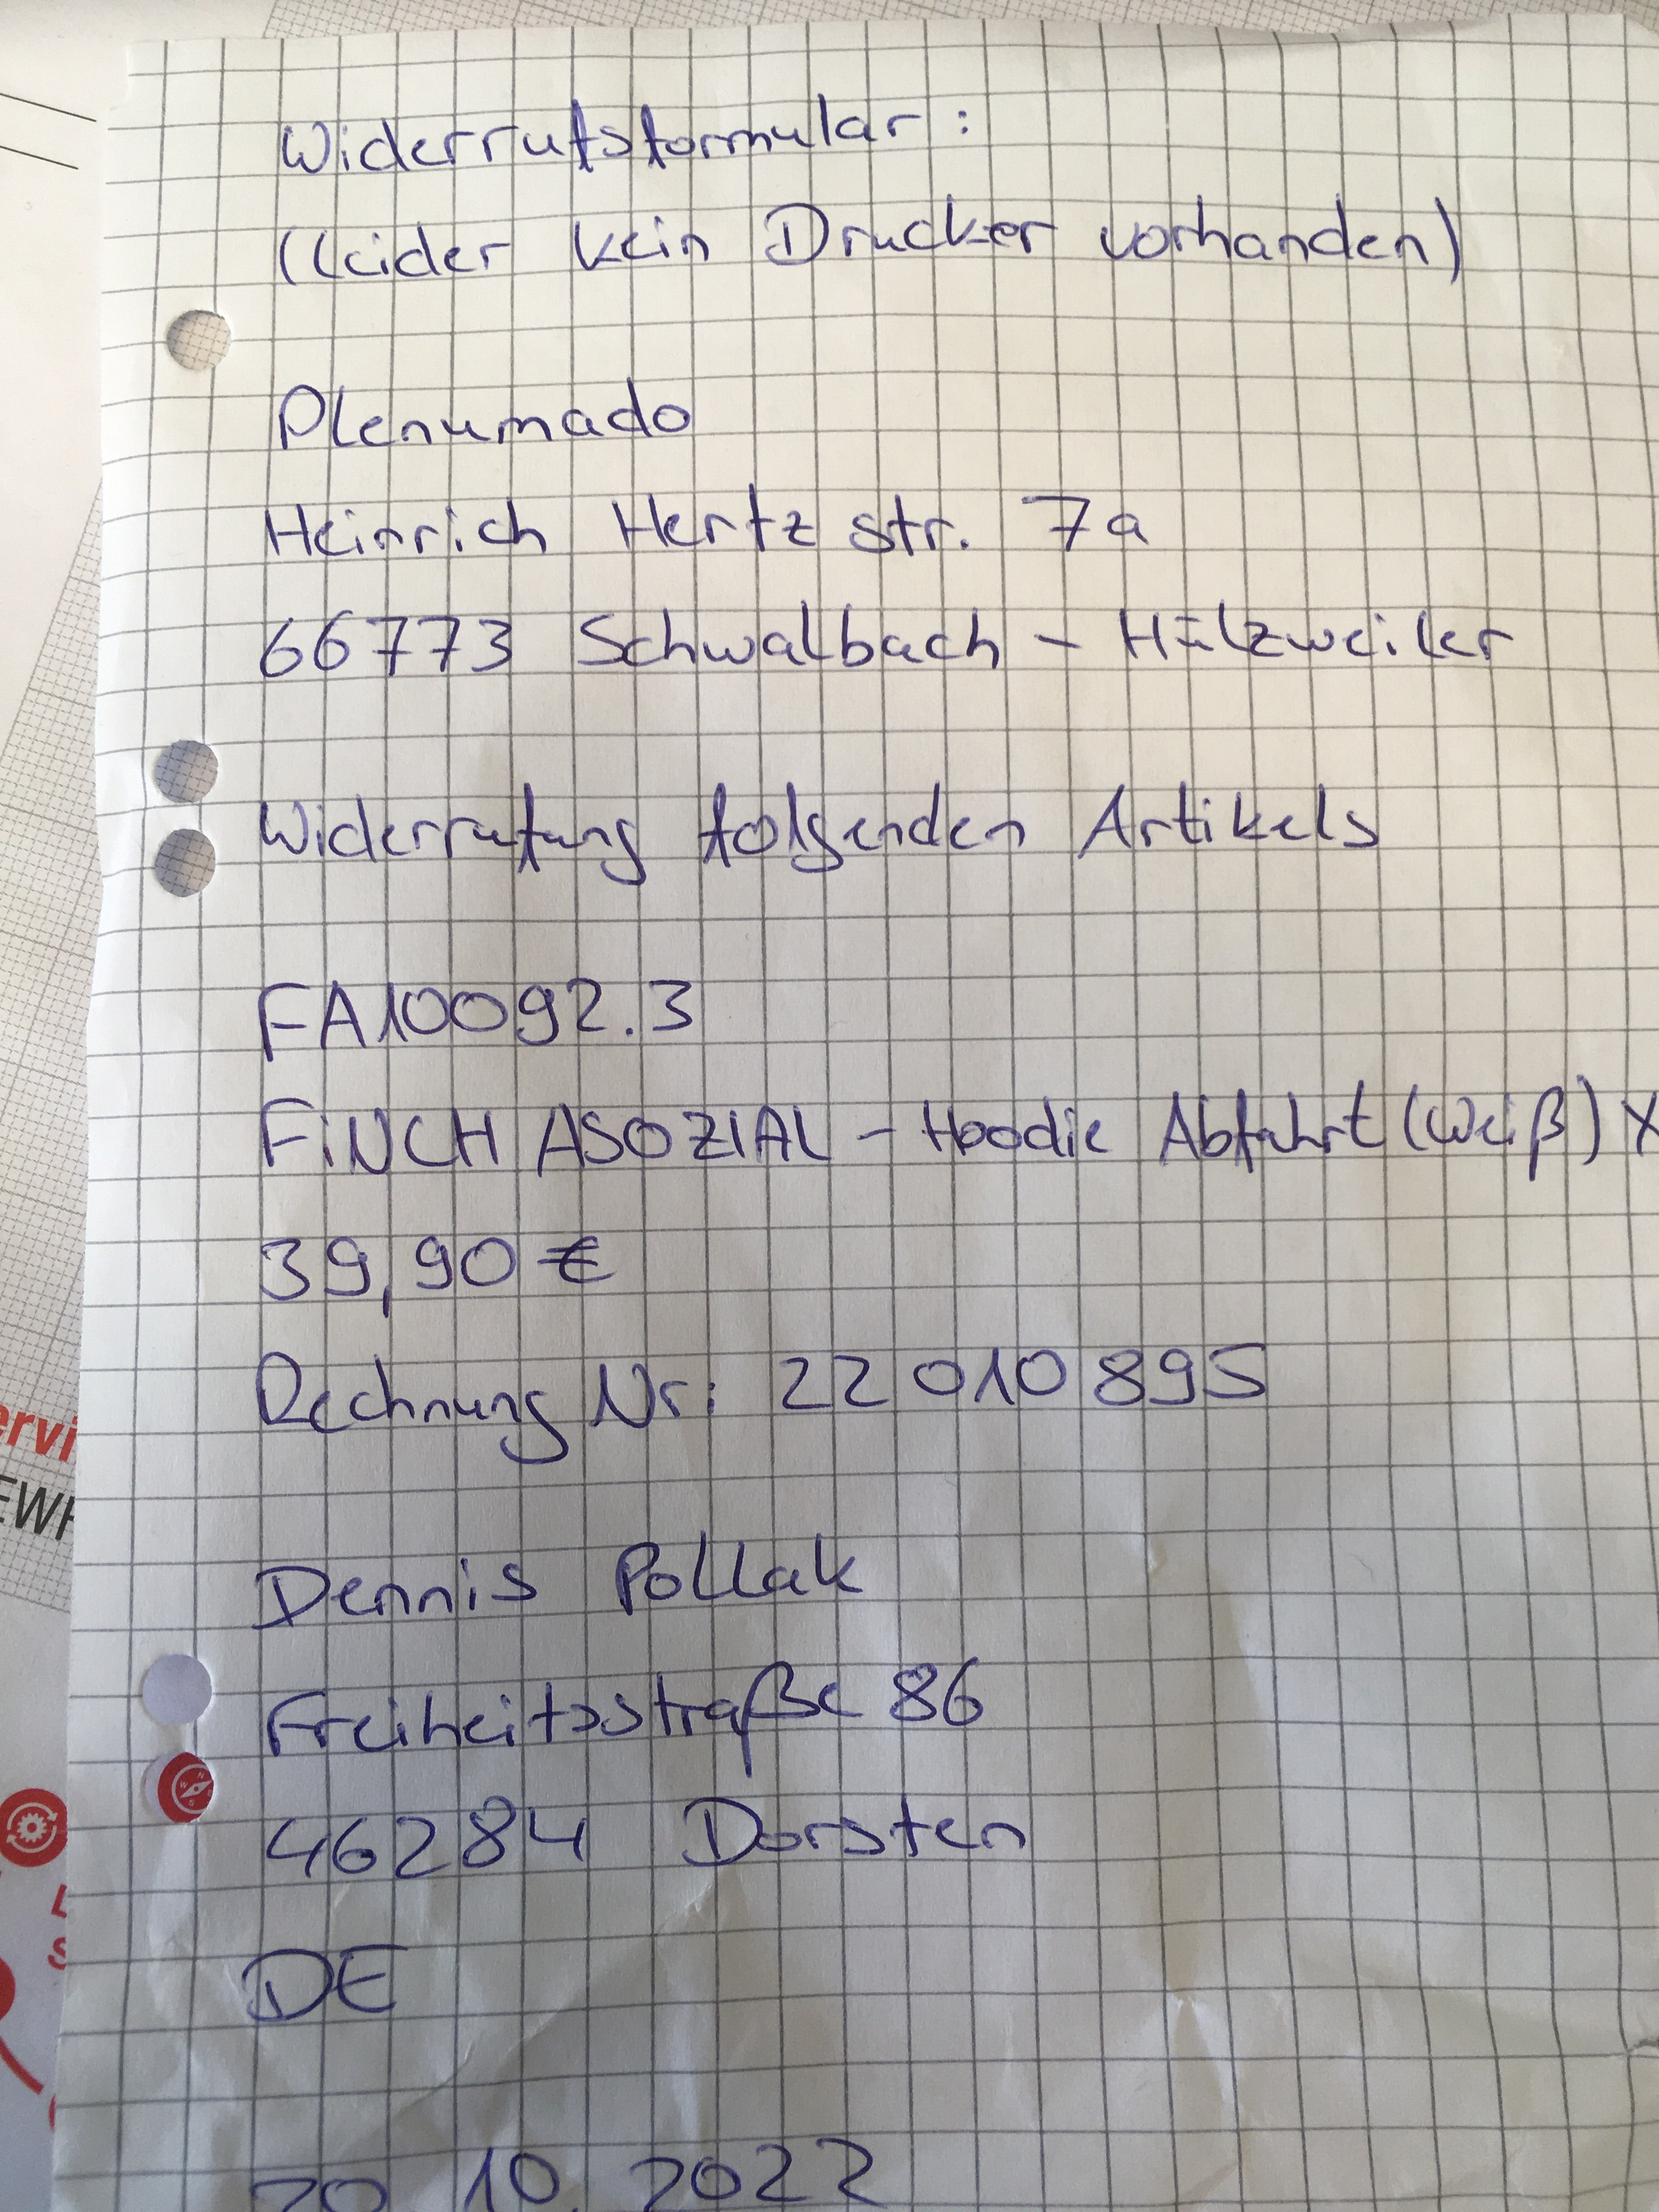 Widerrufsformular:
(leider kein Drucker vorhanden)
Plenumado
Heinrich Hertz str. 7a
66773 Schwalbach - Hülzweiler
Widerrufung folgenden Artikels
FA10092.3
FiNCH ASOZIAL - Hoodie Abfahrt (Weiß) X
39,90 €
Rechnung Nr: 22010895
Dennis Pollak
Freiheitsstraße 86
46284 Dorsten
DE
10.2022